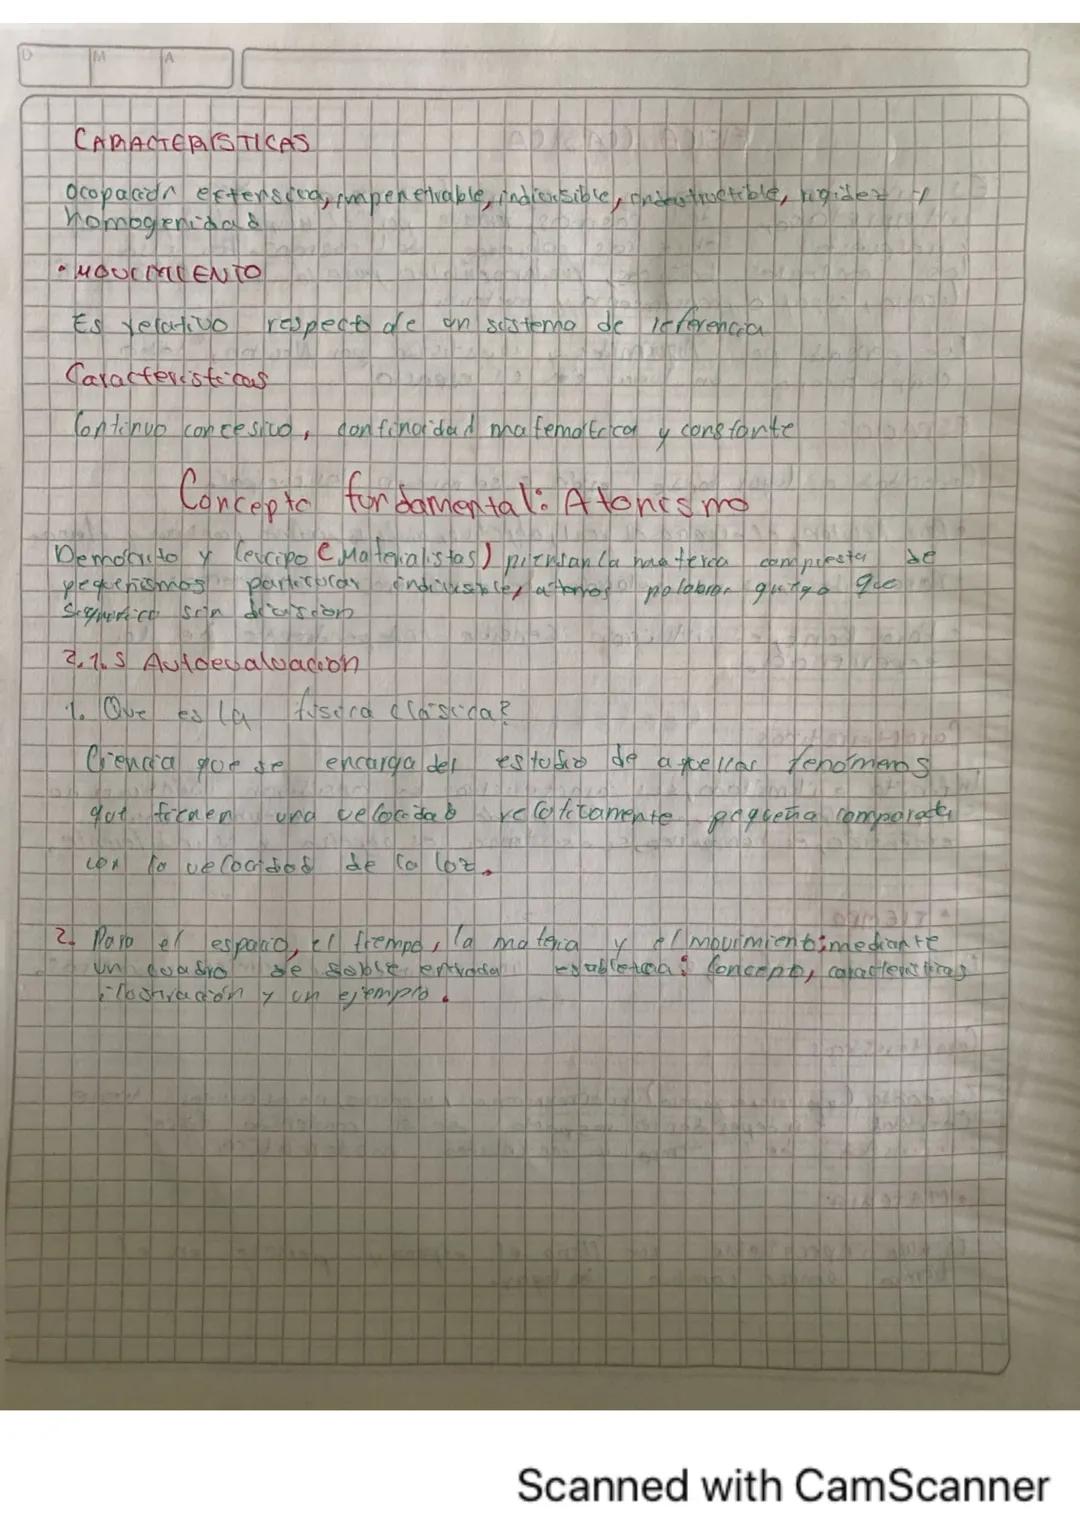 D M A
CARACTERISTICAS
Ocopación extensiva, impenetrable, indivisible, indestructible, rigidez y
homogenidad
• MOVIMIENTO
Es relativo respecto de un sistema de referencia
Caracteristicas
Continuo concesivo, continuidad matematica y constante
Concepto fundamental: Atomismo
Demócrito y Leucipo (Materialistas) piensan la materia compuesta de
pequeñismos particular indivisible, atomos palabra griega que
significa sin división
2.1.5 Autoevaluación
1. Que es la física clásica?
Ciencia que se encarga del estudio de aquellos fenómenos
que tienen una velocidad relativamente pequeña comparada
con la velocidad de la luz.
2. Para el espacio, el tiempo, la materia y el movimiento: mediante
un cuadro de doble entrada establezca: Concepto, características
ilustración y un ejemplo.
Scanned with CamScanner